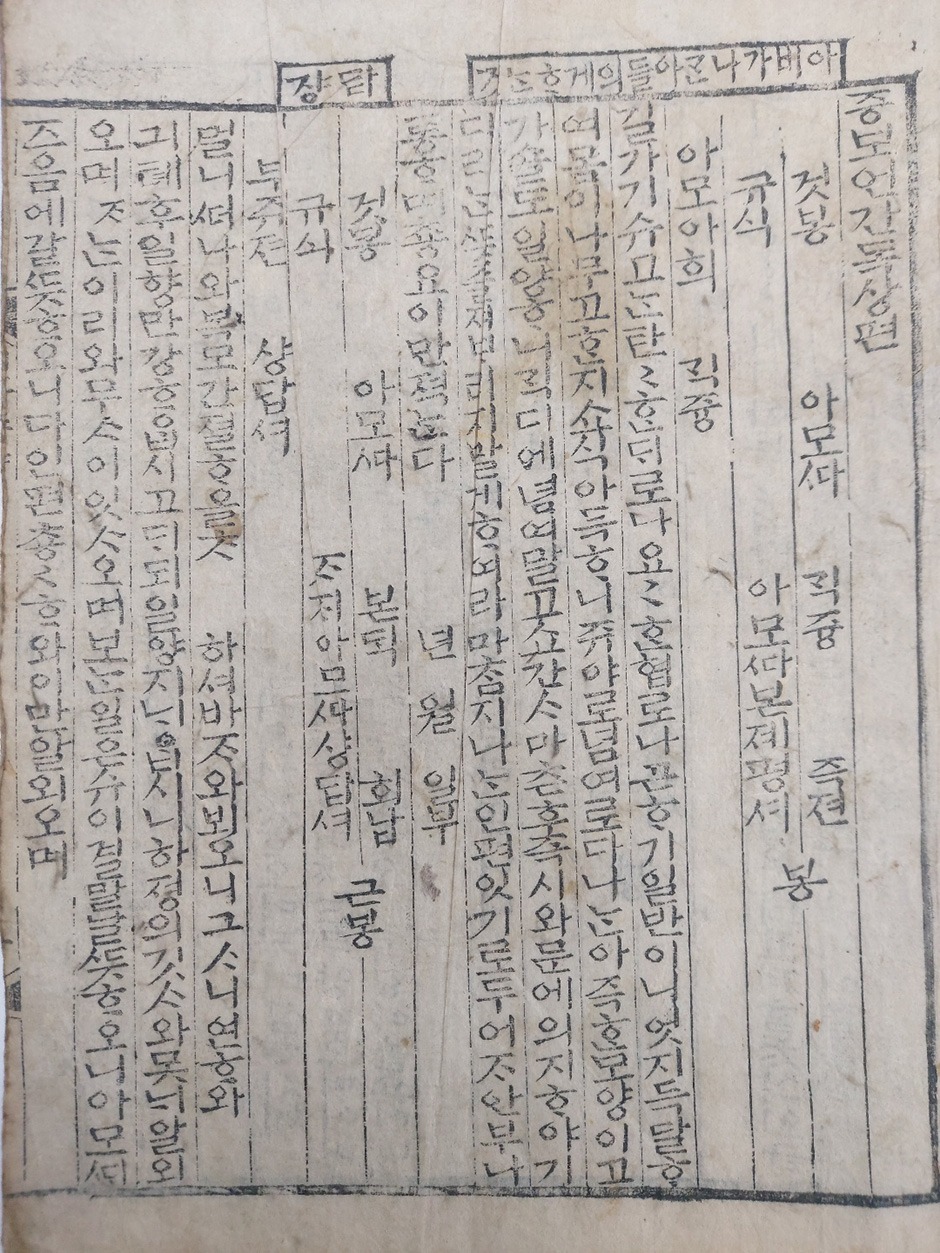 증보언간독상편
아비가나간아들의게ᄒᆞᄂᆞᆫ
것봉 아모ᄯᅡ 직즁 즉젼
규식 아모ᄯᅡ본졔평셔 봉
아모아희 직즁
길가기슈고ᄂᆞᆫ탄탄ᄒᆞᆫᄃᆡ로다요요ᄒᆞᆫ협로나관ᄒᆞ기일반이니엇지득달ᄒᆞ
여몸이나무고ᄒᆞᆫ지소식아득ᄒᆞ니쥬야로념여로다나ᄂᆞᆫ아즉ᄒᆞᆫ모양이고
가솔도일양ᄒᆞ니ᄀᆡᆨ디에념여말고 간ᄉᆞ마ᄎᆞᆫ후즉시와문에의지ᄒᆞ야기
다리ᄂᆞᆫ 부리지말게ᄒᆞ여라마ᄎᆞᆷ지나ᄂᆞᆫ인편잇기로두어ᄌᆞ안부나
통ᄒᆞ며총요이만젹ᄂᆞᆫ다
년 월 일부
답쟝
것봉 아모ᄯᅡ 본ᄃᆡᆨ 회납 근봉
규식 ᄌᆞ저아모ᄯᅡ상답셔
두쥬젼 상답셔
멀니ᄯᅥ나와복모간졀ᄒᆞ올ᄎᆞ 하셔바ᄌᆞ와보오니그ᄉᆞ니연ᄒᆞ와
긔톄후일향만강ᄒᆞᄋᆞᆸ시고ᄃᆡ되일양지ᄂᆡᄋᆞᆸ시니하졍의깃ᄉᆞ와못ᄂᆡ알외
오며 ᄌᆞᄂᆞᆫ이리와무ᄉᆞ이잇ᄉᆞ오며보ᄂᆞᆫ일은슈이결말날ᄃᆞᆺᄒᆞ오니아모ᄯᅢ
즈음에갈ᄃᆞᆺᄒᆞ오니다인편총총ᄒᆞ와이만알외오며